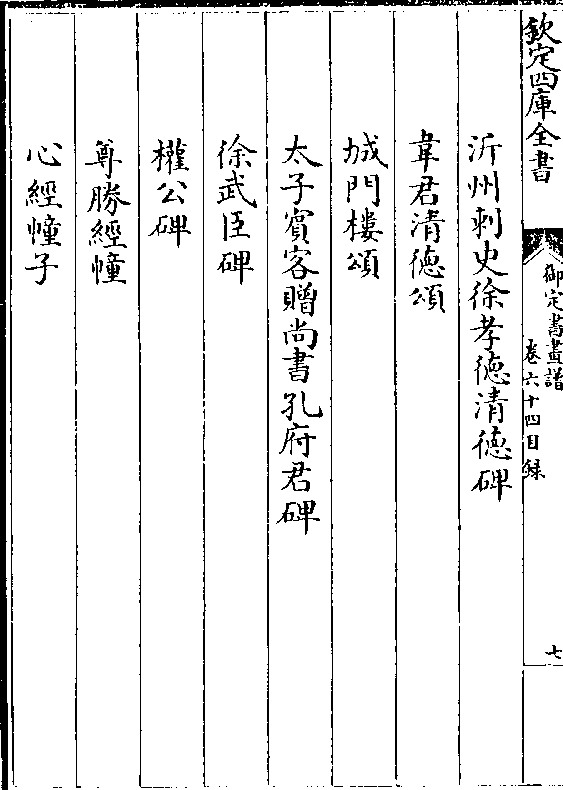 欽定四庫全書
御定書畫譜
卷六十四目錄
七
沂州刺史徐孝德清德碑
韋君清德頌
城門樓頌
太子賓客贈尚書孔府君碑
徐武臣碑
權公碑
尊勝經幢
心經幢子